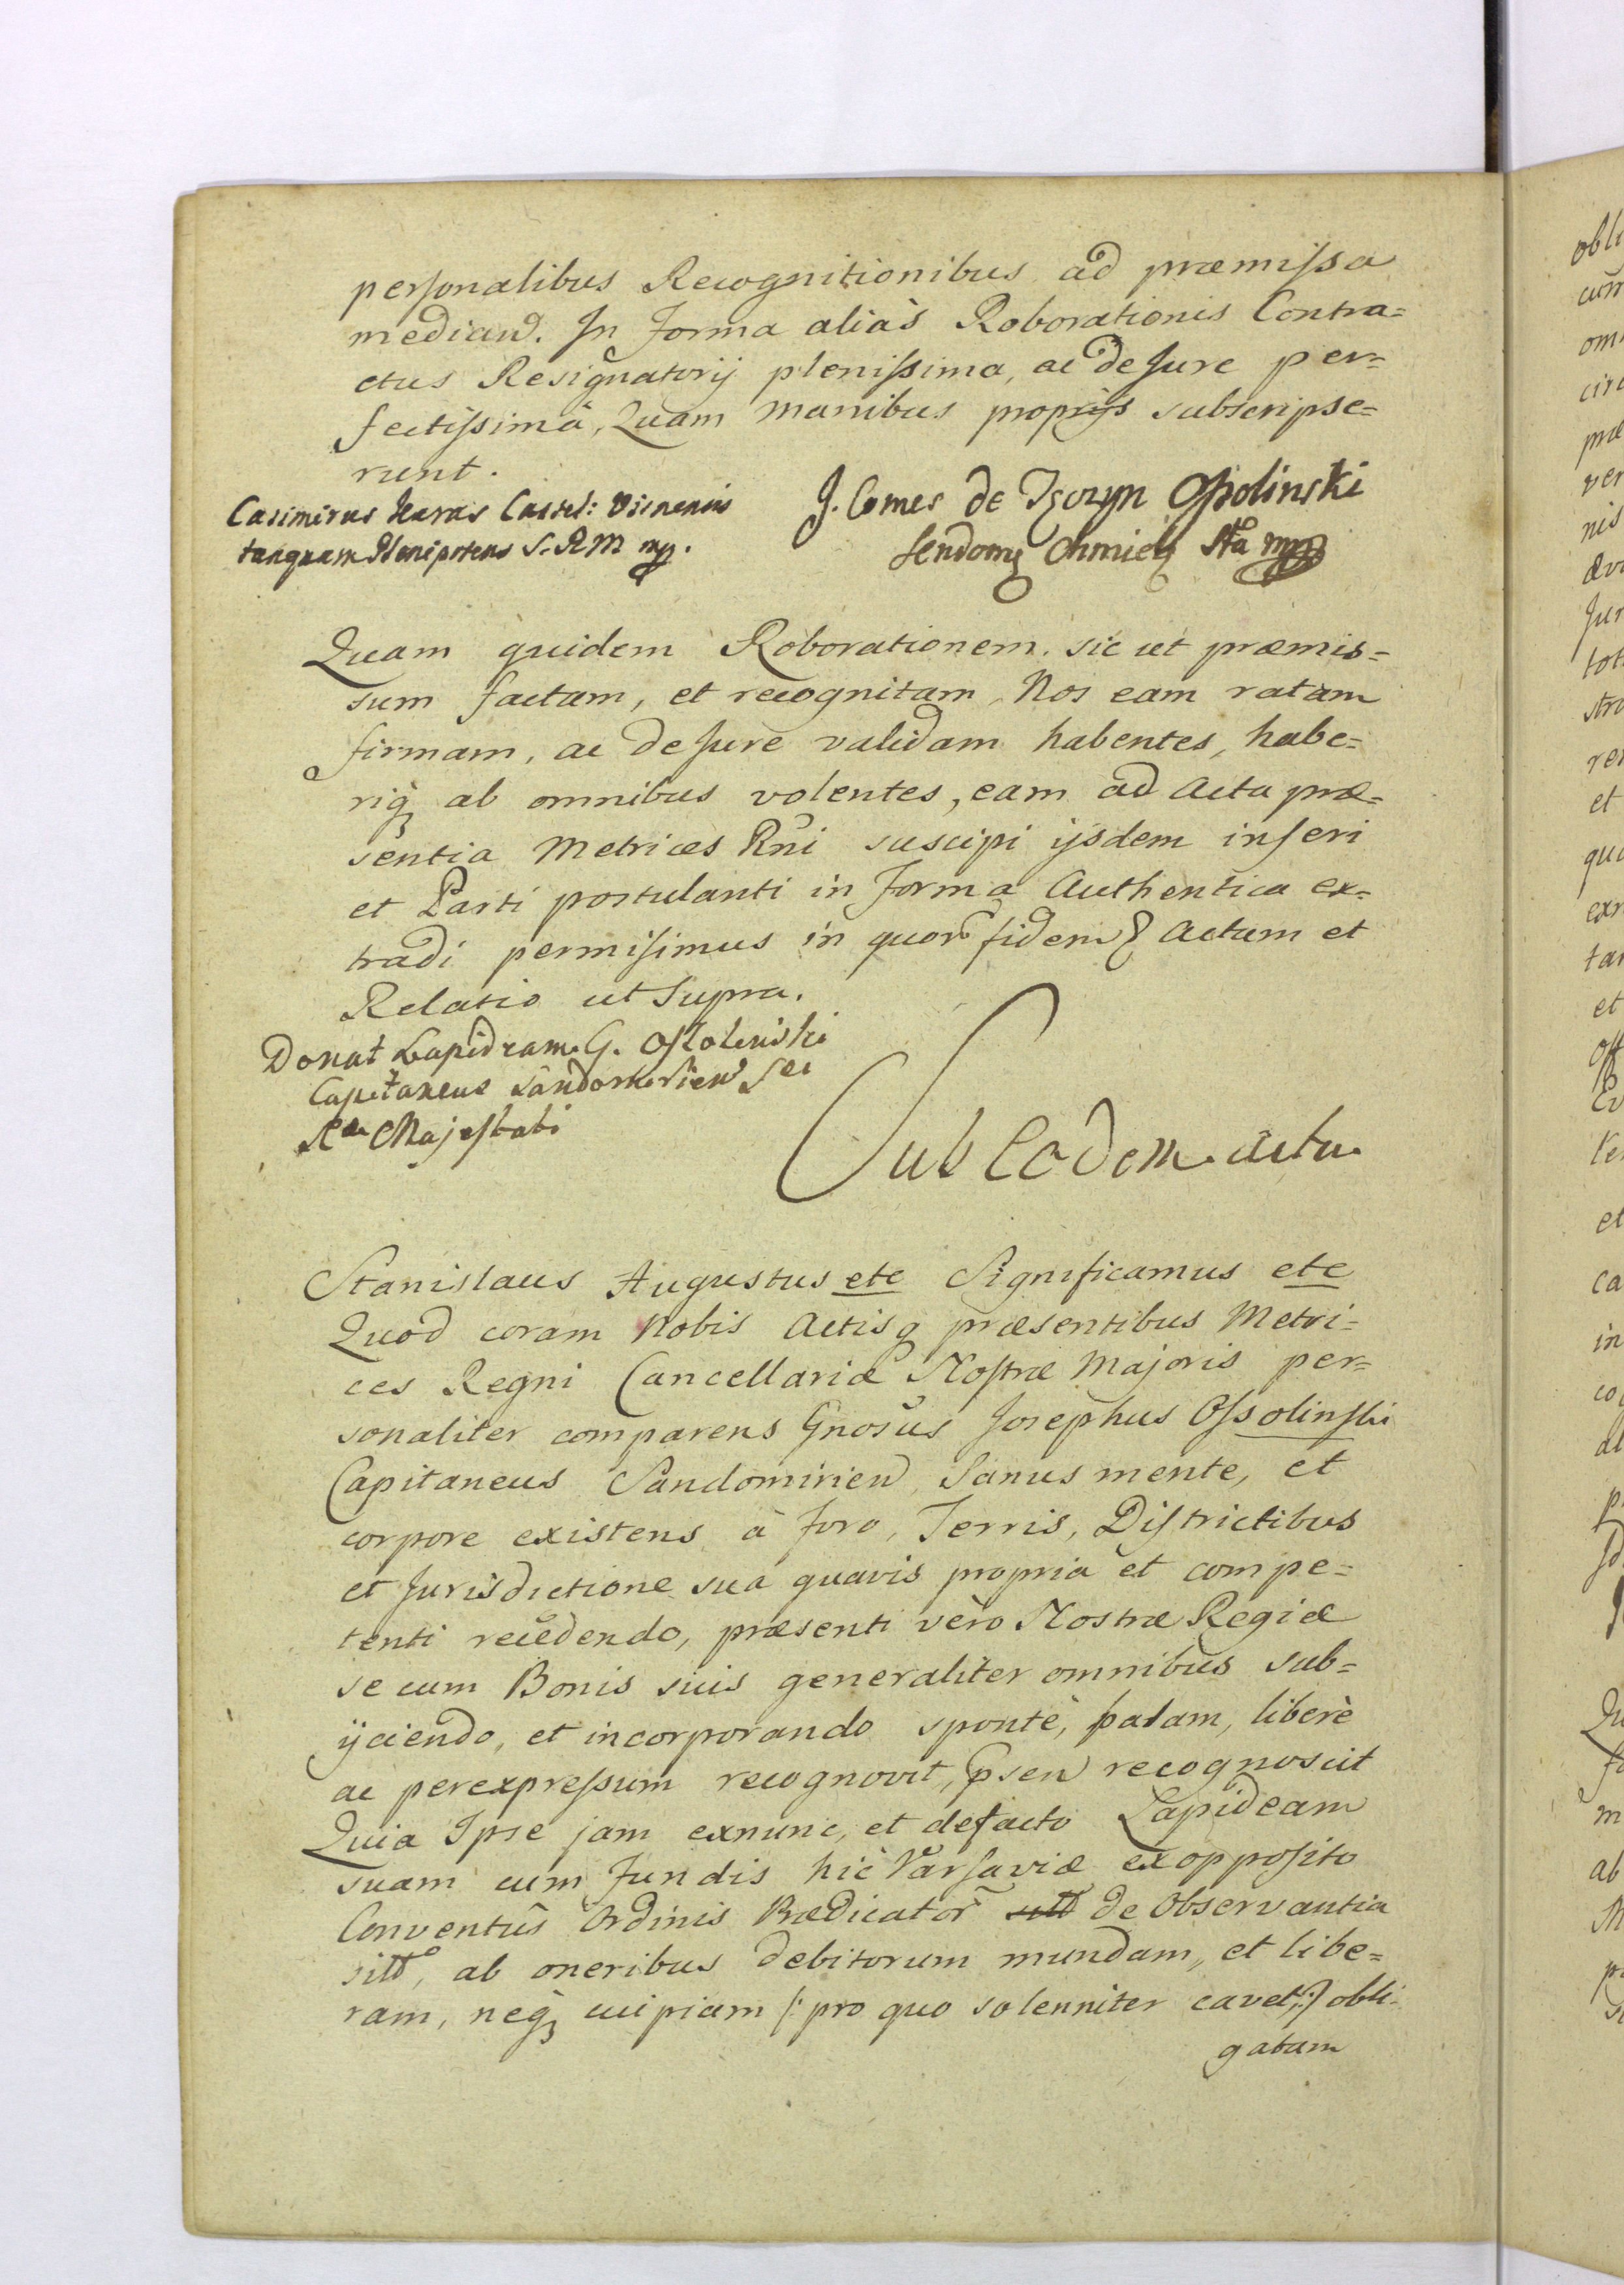 personalibus Recognitionibus ad præmissa
median̄d. In forma aliàs Roborationis Contra=
ctus Resignatorij plenissima, ac de Jure per=
fectissimâ, Quam manibus proprijs subscripse=
runt.
Casimirus Karas Castel: Visnensis
tanquam Plenipotens S. R M mp.
J. Comes de Tęczyn Ossolinski
Sendom: Chmiel: Sta mpp
Quam quidem Roborationem sic ut præmis=
sum factam, et recognitam, Nos eam ratam
firmam, ac de Jure validam habentes, habe=
riq; ab omnibus volentes, eam ad Acta præ=
sentia Metrices Rñi suscipi ijsdem inseri
et Parti postulanti in forma Authentica ex=
tradi permisimus in quor̄ fidem Actum et
Relatio ut Supra.
Donat Lapideam G. Ossolinski
Capitaneus Sandomirien Scæ
Ræ Majestati
Sub Eodem actu
Stanislaus Augustus etc Significamus etc
Quod coram Nobis Actisq præsentibus Metri=
ces Regni Cancellariæ Nostræ Majoris per=
sonaliter comparens Gnosus Josephus Ossolinski
Capitaneus Sandomirien Sanus mente, et
corpore existens à foro, Terris, Districtibus
et Jurisdictione sua quavis propria et compe=
tenti recedendo, præsenti vero Nostræ Regiæ
se cum Bonis suis generaliter omnibus sub=
ijciendo, et incorporando sponte, palam, liberè
ac per expressum recognovit, psen recognoscit
Quia Ipse jam exnunc, et defacto Lapideam
suam cum fundis hic Varsaviæ ex opposito
Conventûs Ordinis Prædicator̃ sitt de Observantia
sitt, ab oneribus debitorum mundam, et libe=
ram, neq; cuipiam /: pro quo solenniter cavet :/ obli=
gatam